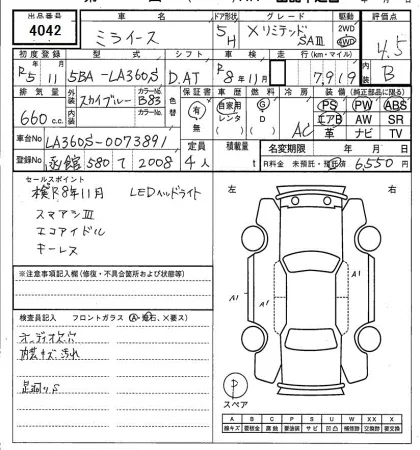 出品番号 車名 ドア形状 グレード 駆動 評価点
4042 ミライース 5H X リミテッド SAⅢ 2WD 4WD 4.5
初度登録 型式 シフト 車検 走行(km・マイル) 内装
R5 11 5BA-LA360S D.AT R8年11月 7,919 B
排気量 外装 カラーNo. 色替 保証書 車歴 燃料 冷房 装備(純正部品に限る)
660 c.c. スカイブルー B83 有 無 自家用 レンタ G D AC PS PW ABS
エアB AW SR
革 ナビ TV
車台No LA360S-0073891 定員 積載量 名変期限 年 月 日
登録No 函館 580 て 2008 4人 t R料金 未預託・預託済 6,550円
セールスポイント
検R8年11月 LEDヘッドライト
スマアシⅢ
エコアイドル
キーレス
左 右
※注意事項記入欄(修復・不具合箇所および状態等)
A1 A1 A1
検査員記入 フロントガラス (A・飛石、×要ス)
オーディオ欠穴
内装キズ汚れ
足廻りS
P
スペア
A B C P S U W X XX
線キズ 要板金 腐蝕 要塗装 サビ 凹凸 補修跡 交換跡 要交換